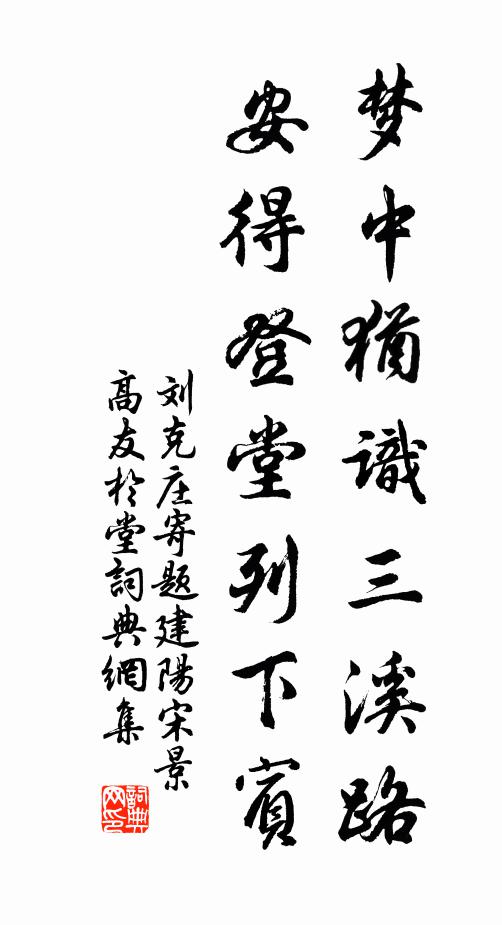 梦中犹識三溪路
安得登堂列下賓
刘克庄寄题建陽宋景
高友於堂詞典網集
詞典
网印